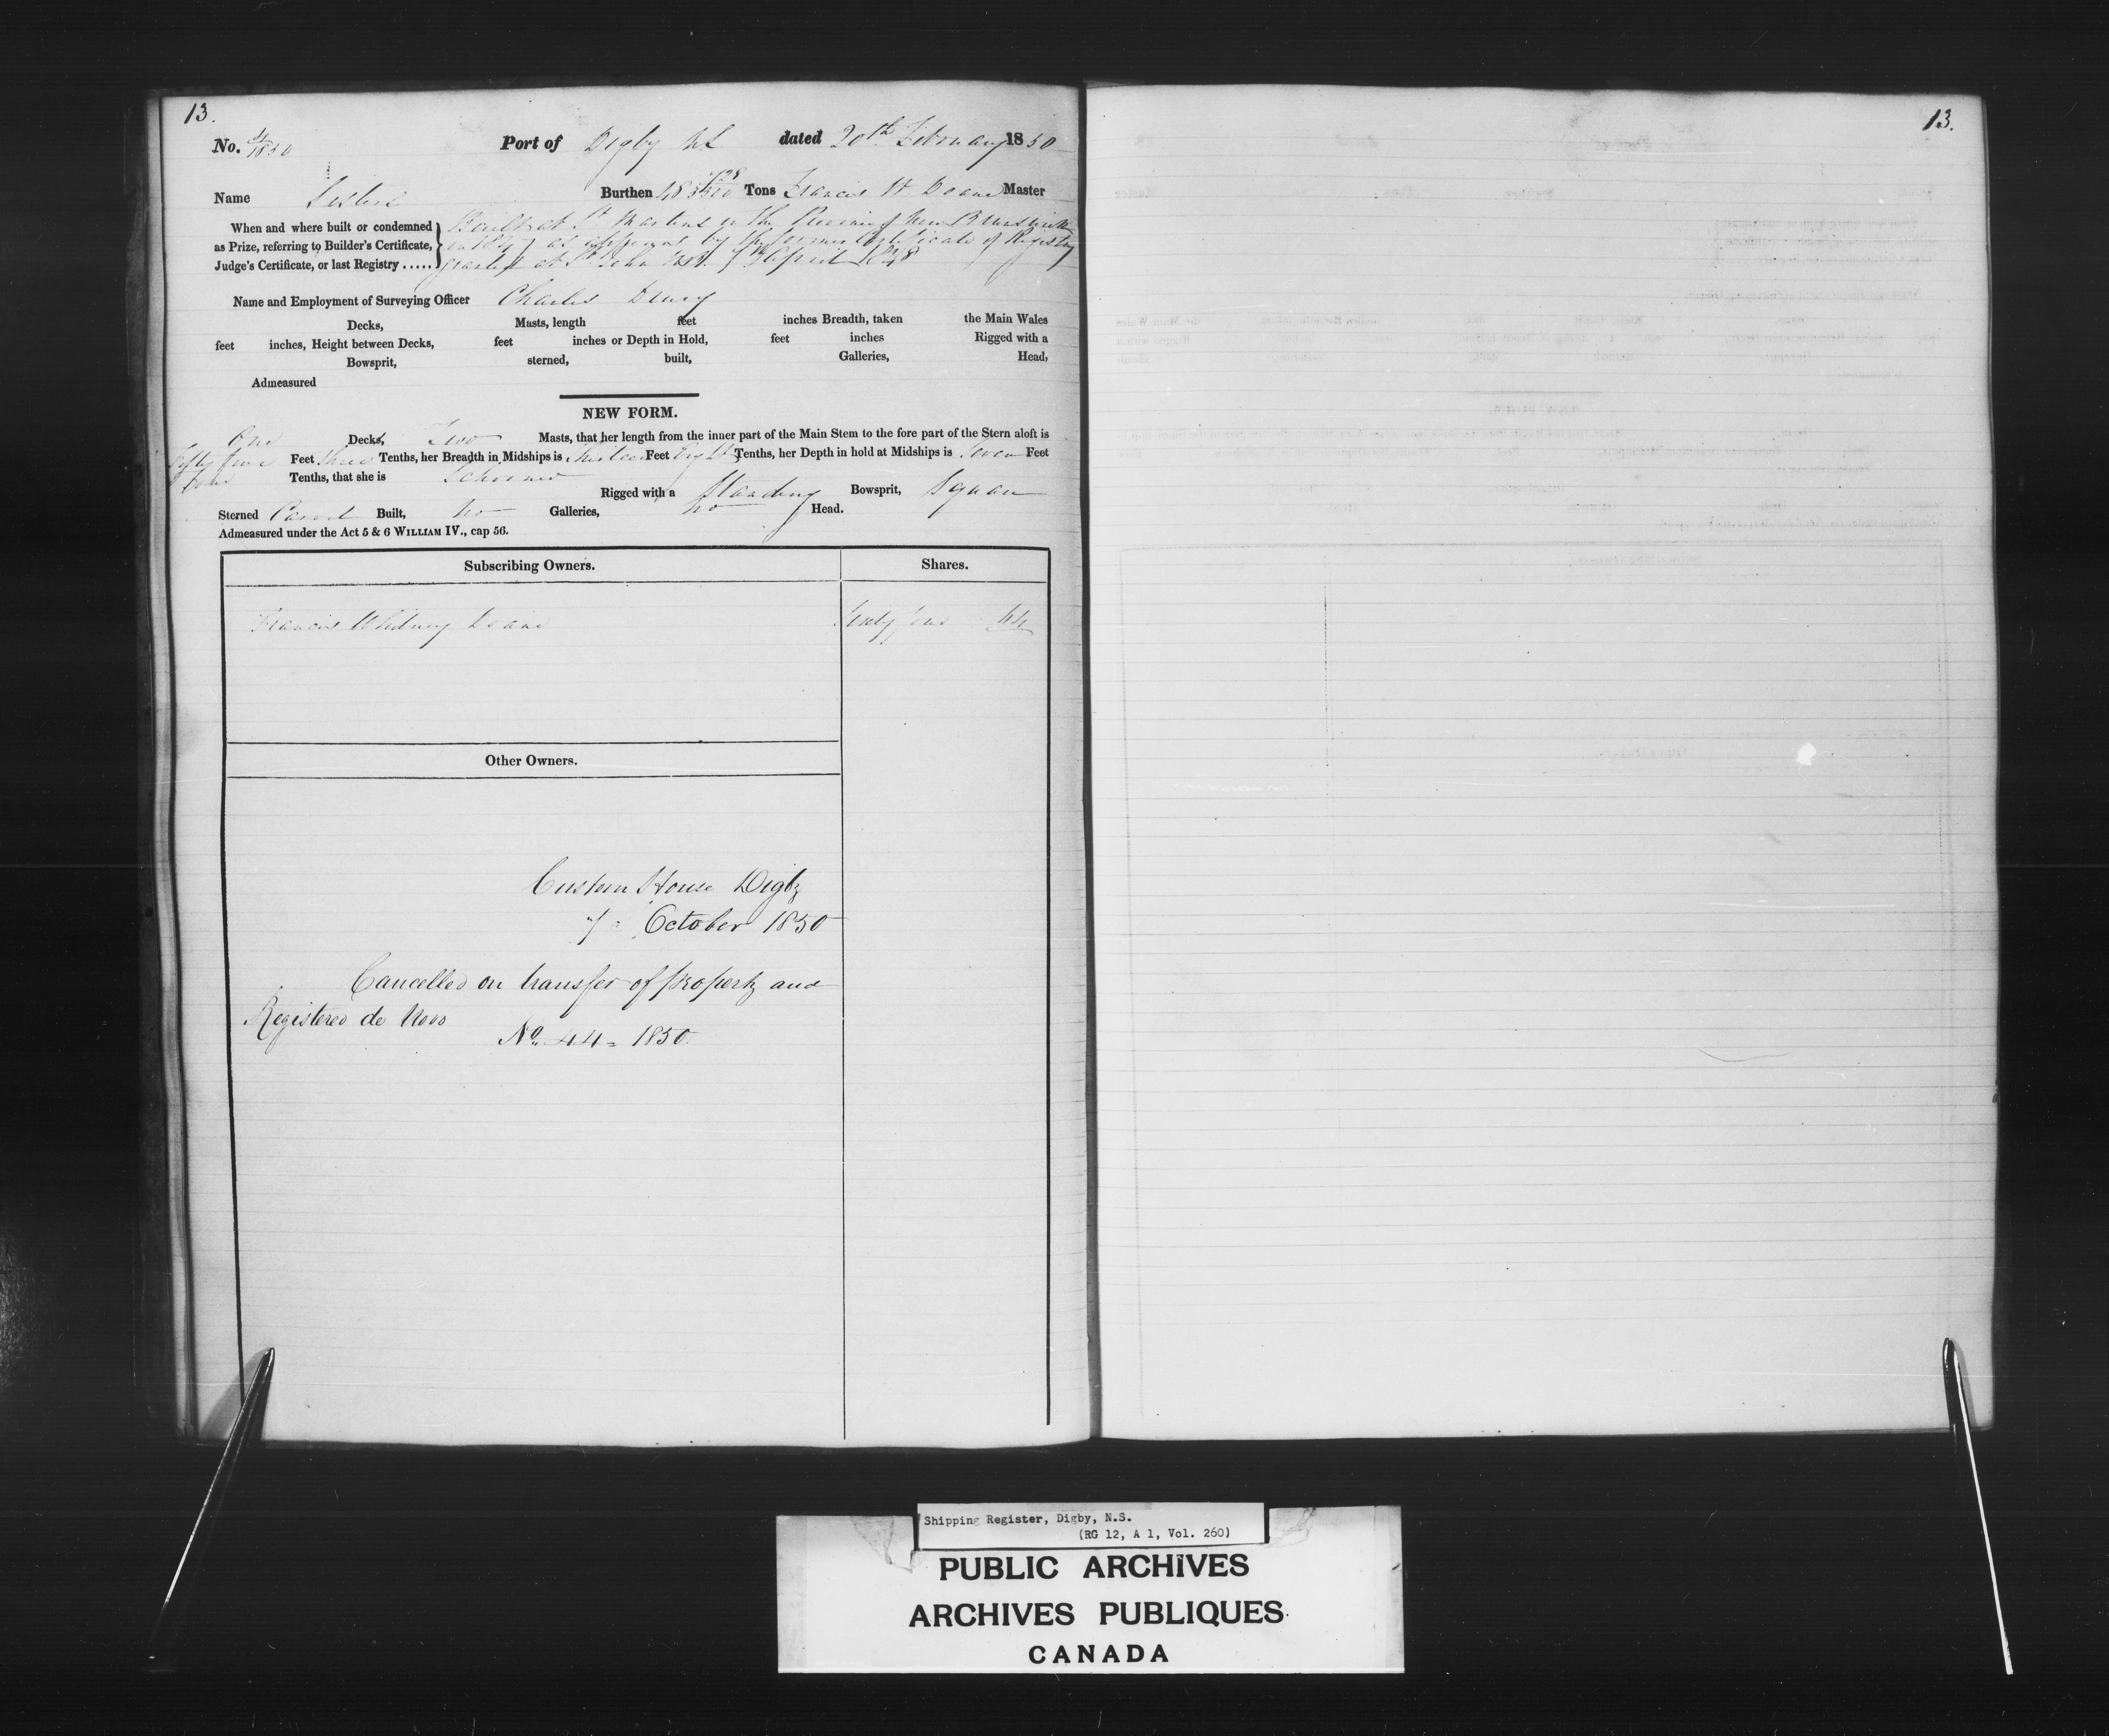 13.
No. 4/1850 Port of Digby NS dated 20th February 1850
Name Sisters Burthen 48 Tons Francis W Doane Master
When and where built or condemned as Prize, referring to Builder's Certificate, Judge's Certificate, or last Registry .....
Built at St Martins in the Province of New Brunswick
in 1847 as appears by the former Certificate of Registry
granted at St John NB. 7th April 1848
Name and Employment of Surveying Officer Charles Drury
Decks, Masts, length feet inches Breadth, taken the Main Wales
feet inches, Height between Decks, feet inches or Depth in Hold, feet inches Rigged with a
Bowsprit, sterned, built, Galleries, Head,
Admeasured
NEW FORM.
One Decks, Two Masts, that her length from the inner part of the Main Stem to the fore part of the Stern aloft is
Fifty five Feet three Tenths, her Breadth in Midships is Thirteen Feet Eight Tenths, her Depth in hold at Midships is Seven Feet
four Tenths, that she is Schooner Rigged with a Standing Bowsprit, Square
Sterned Carvel Built, No Galleries, No Head.
Admeasured under the Act 5 & 6 WILLIAM IV., cap 56.
Subscribing Owners. Shares.
Francis Whitney Doane Sixty four 64
Other Owners.
Custom House Digby
7 October 1850
Cancelled on transfer of property and
Registered de Novo
No. 44 = 1850.
13.
Shipping Register, Digby, N.S.
(RG 12, A 1, Vol. 260)
PUBLIC ARCHIVES
ARCHIVES PUBLIQUES
CANADA